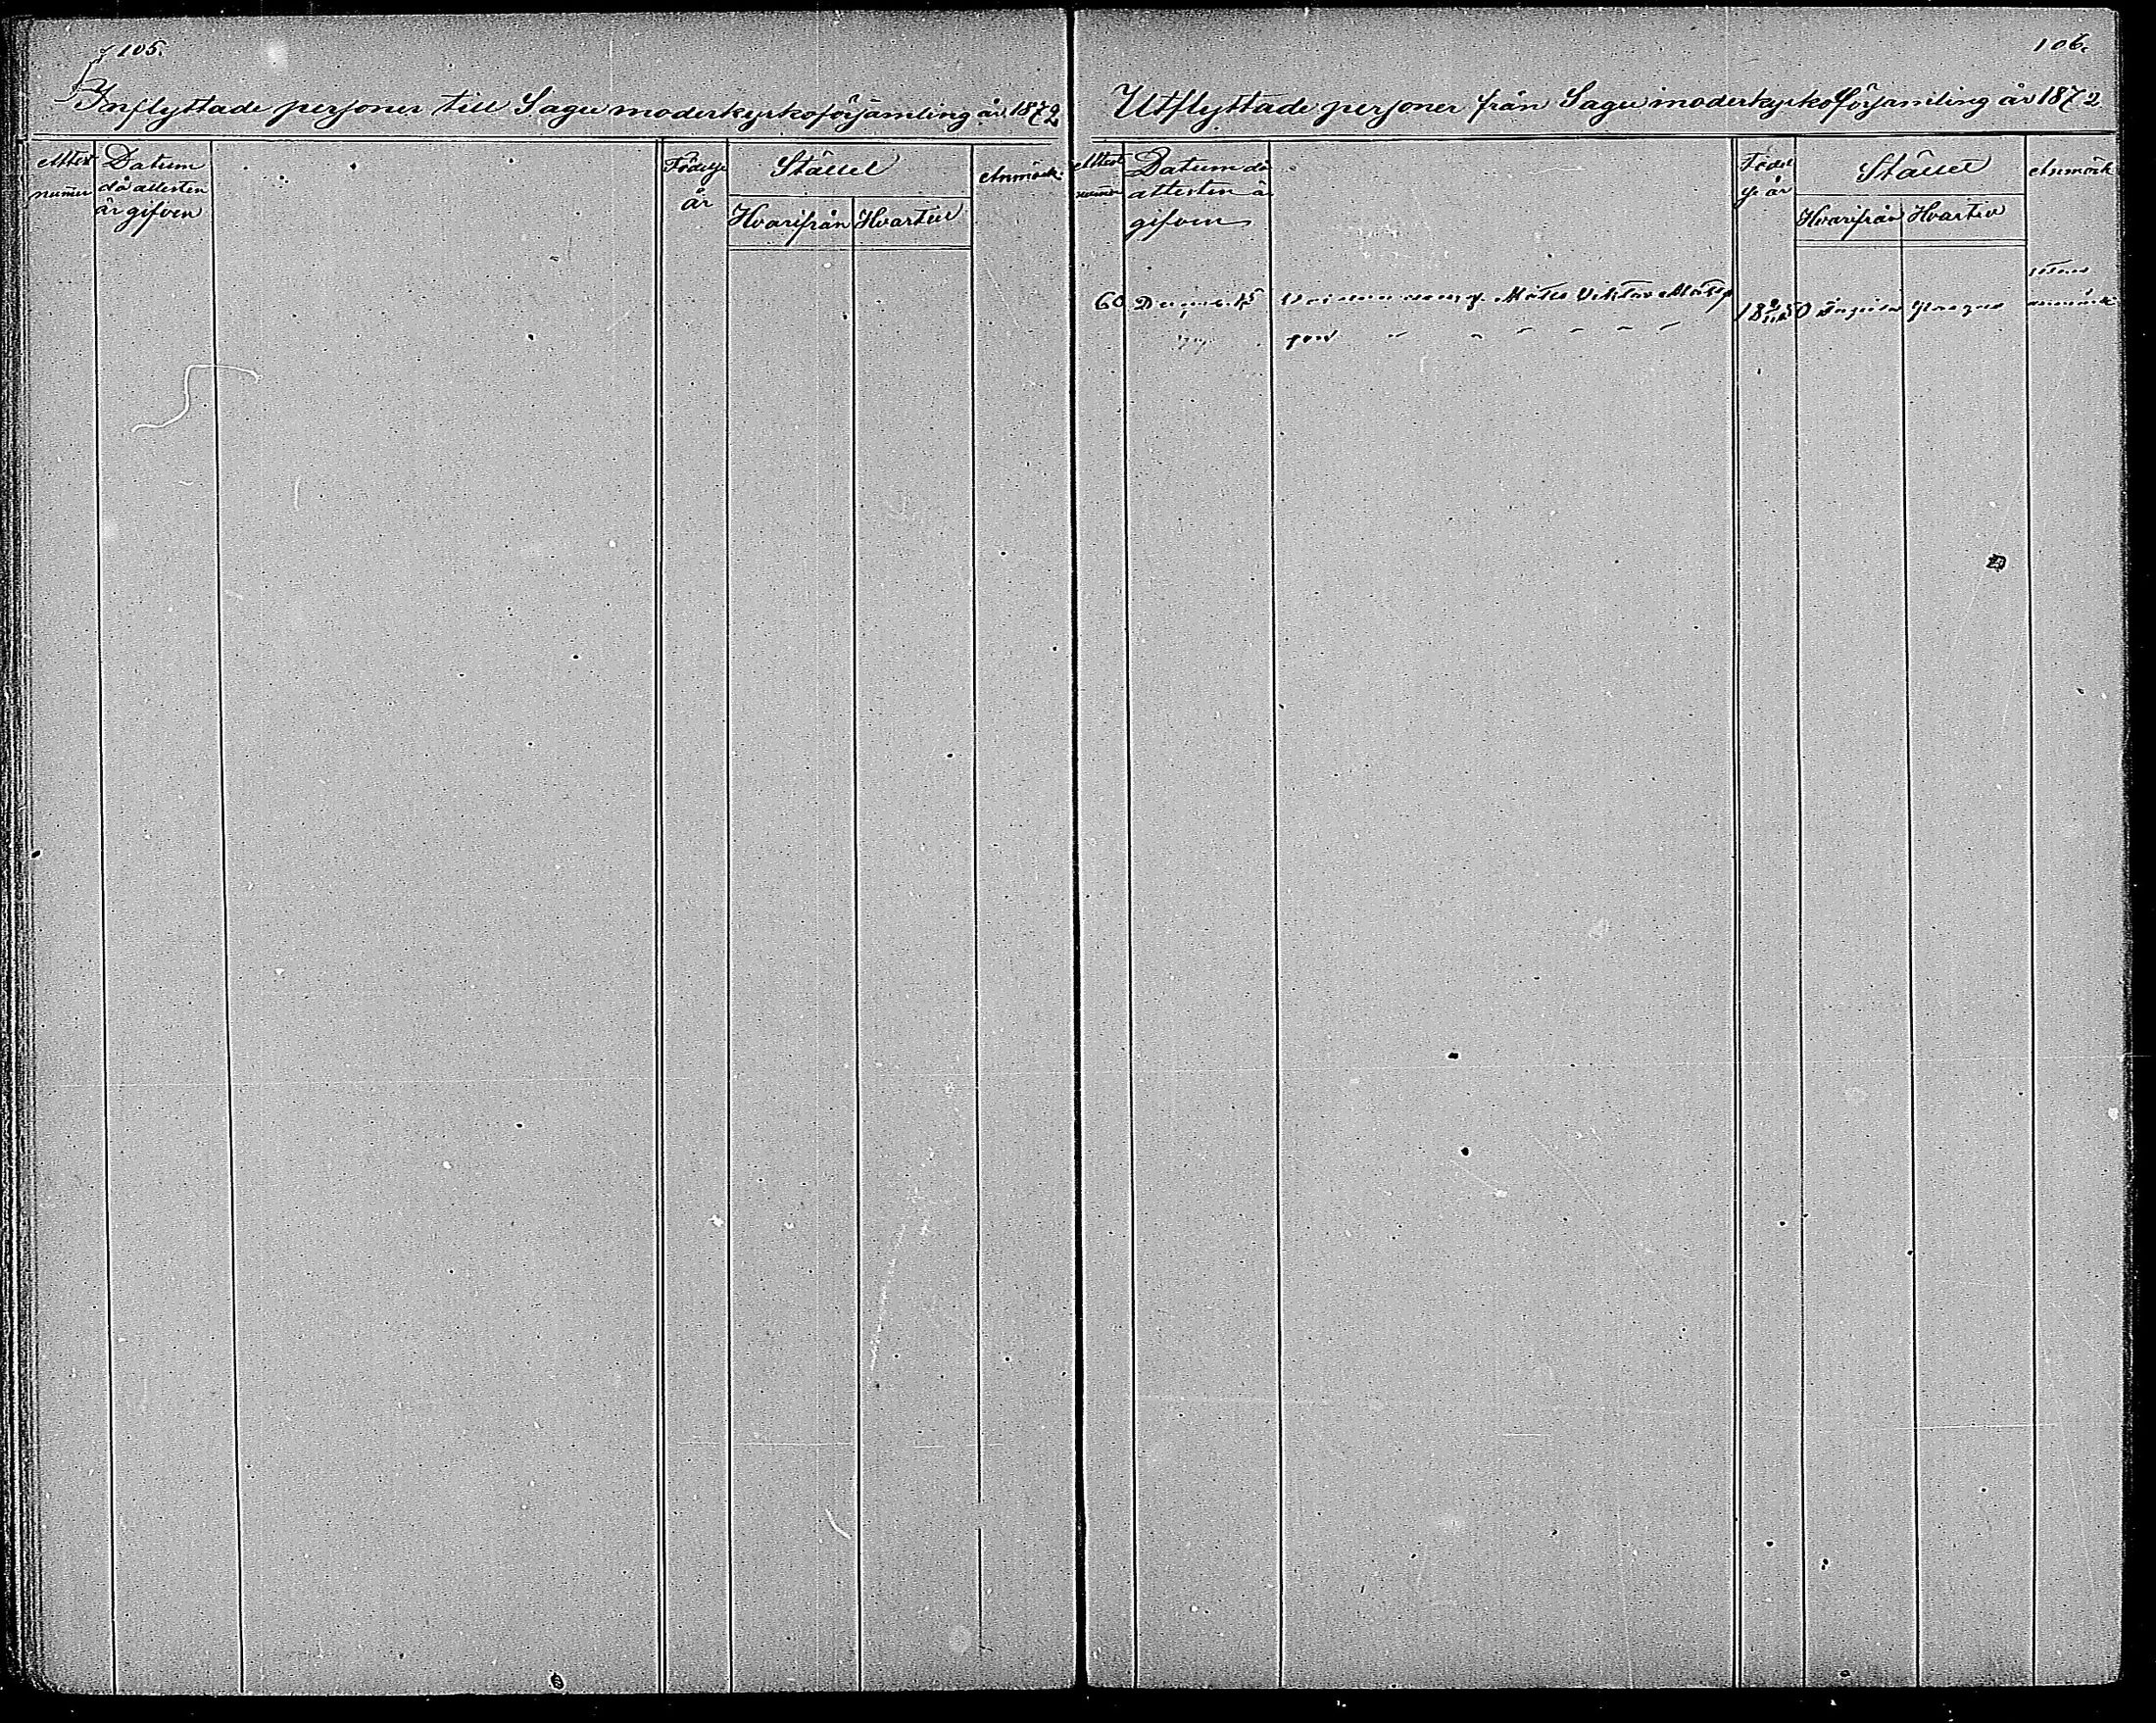 105.
Inflyttade personer till Sagu moderkyrkoförsamling år 1872
Attest
numer
Datum
då attesten
är gifven
Födelse
år
Stället
Hvarifrån Hvartill
Anmärk:
106.
Utflyttade personer från Sagu moderkyrkoförsamling år 1872
Attest
numer
Datum då
attesten är
gifven
Födel
se år
Stället
Hvarifrån Hvartill
Anmärk
utan
60 Decemb. 15 Mats Viktor Mats
son 1850 anmärk